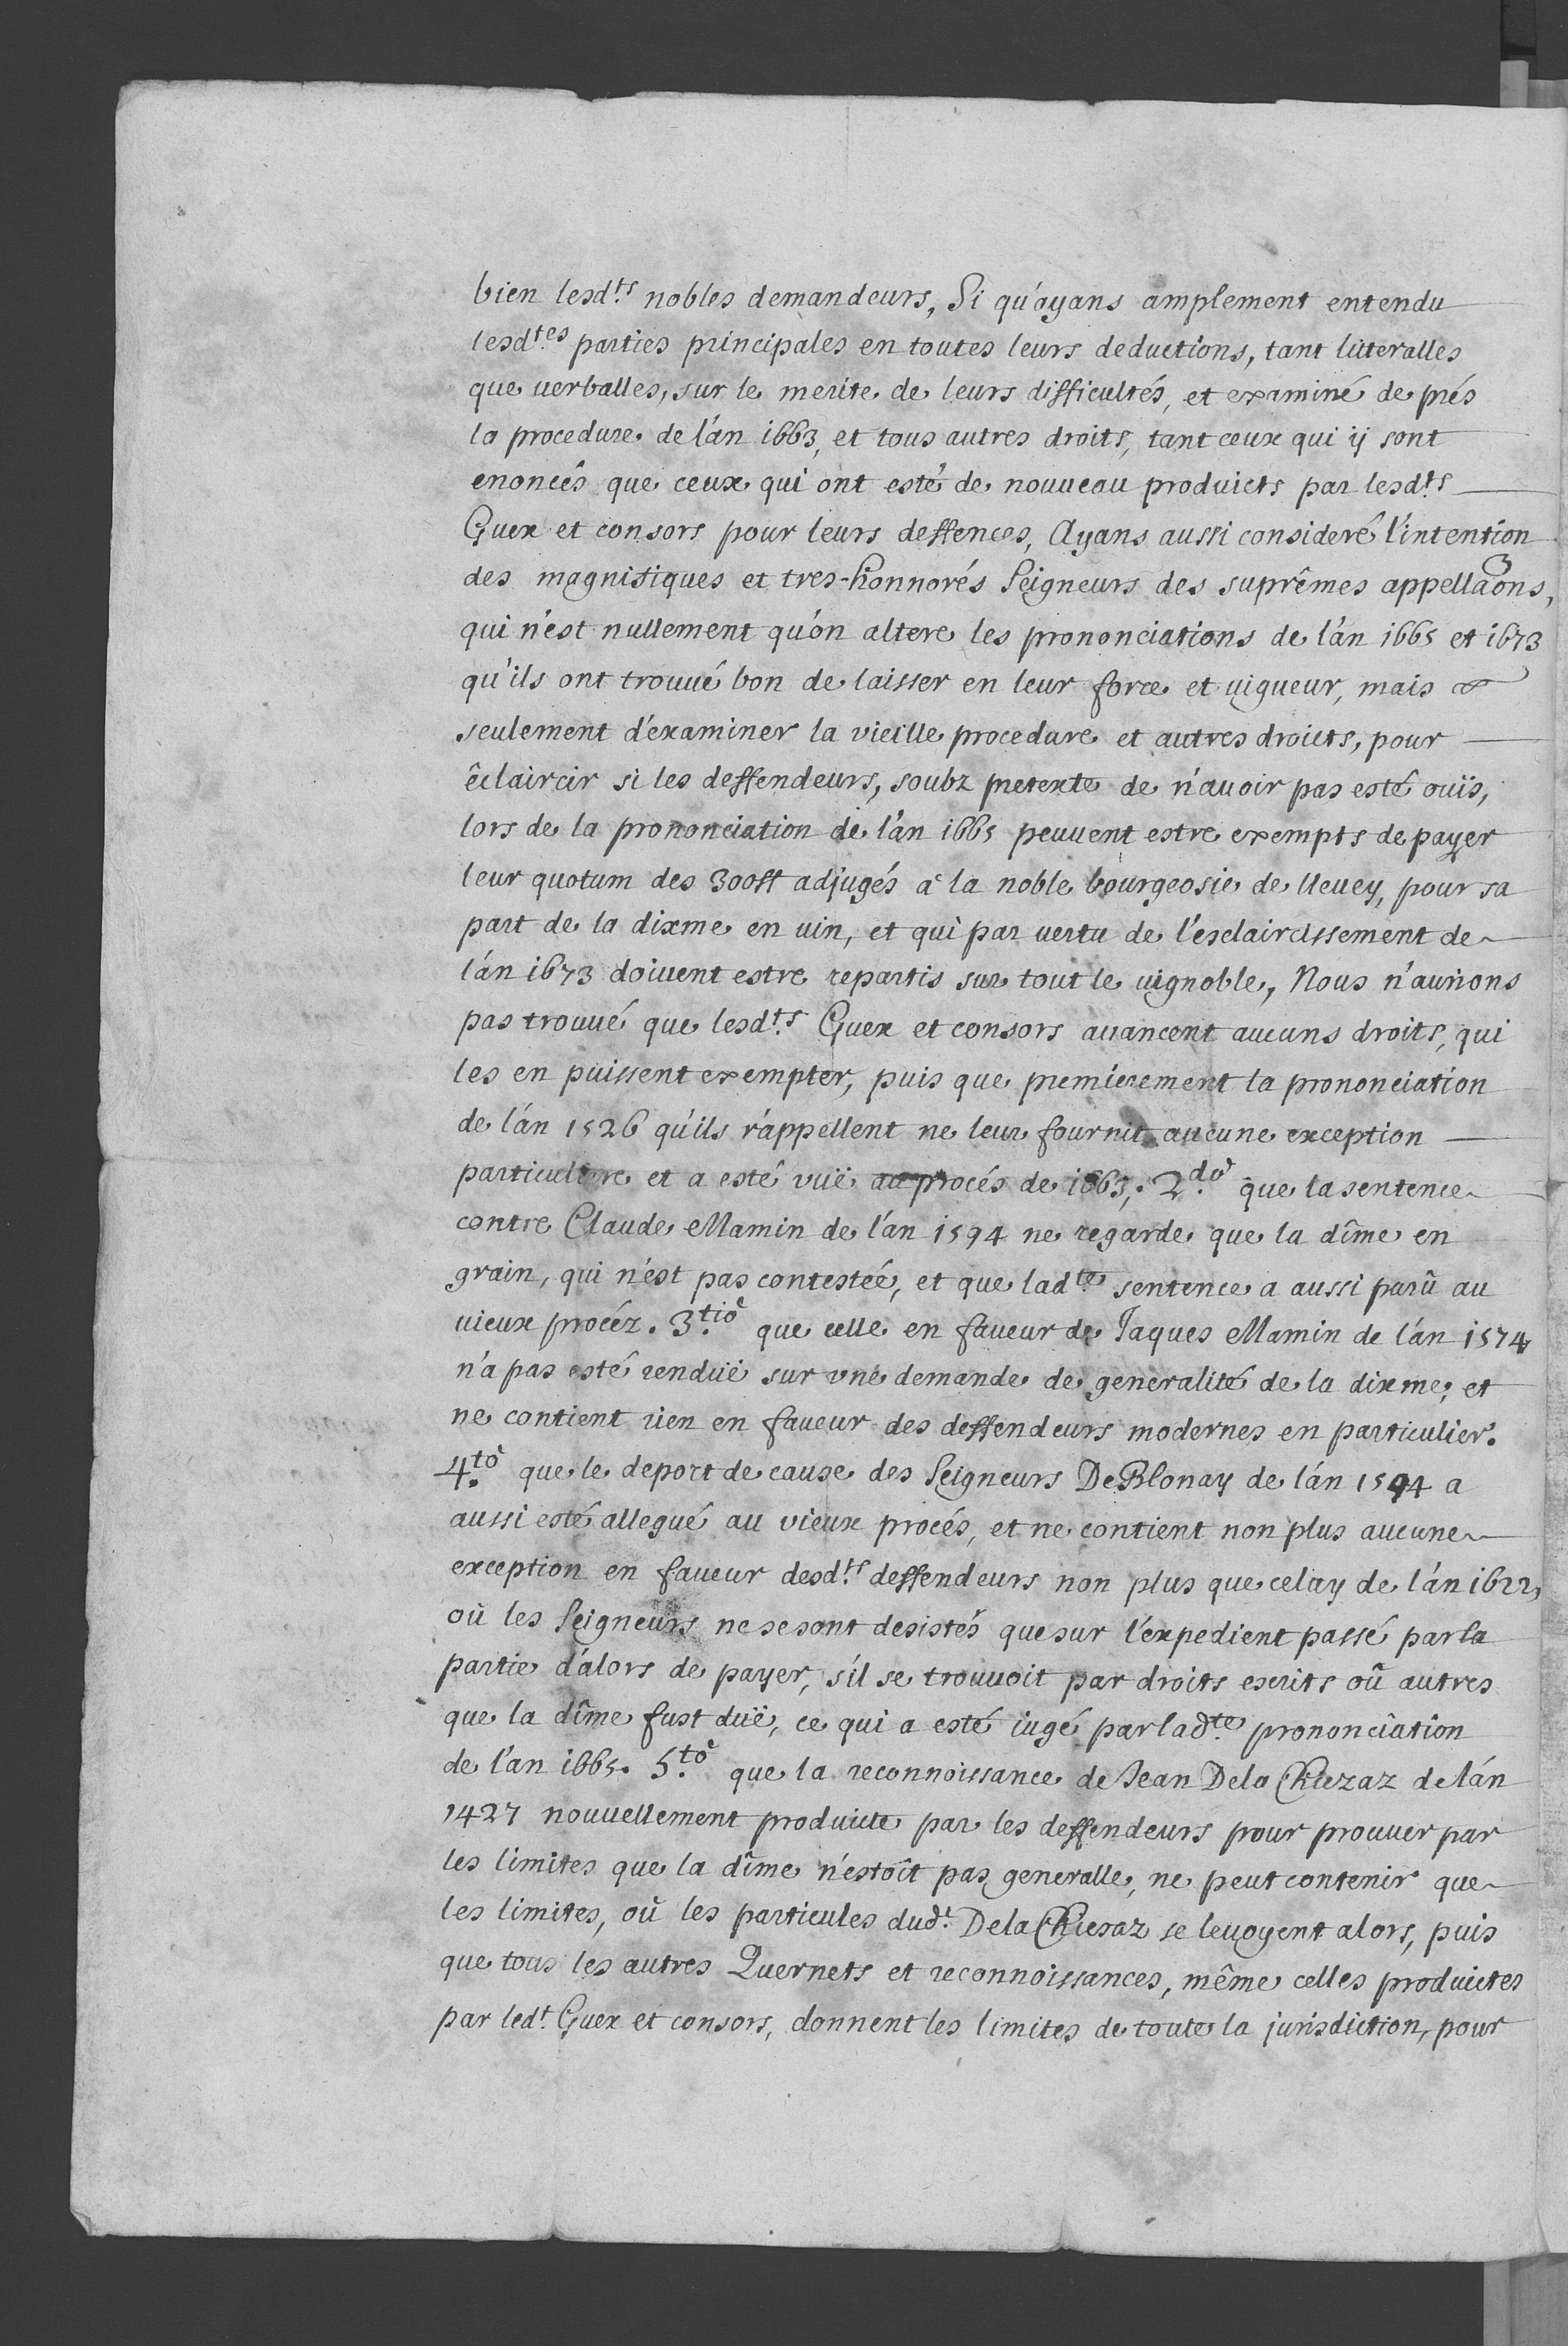 bien lesd.ts nobles demandeurs, Si qu'ayans amplement entendu
lesd.tes parties principales en toutes leurs deductions, tant litteralles
que verballes, sur le merite de leurs difficultés, et examiné de prés
la procedure de l'an 1663, et tous autres droits, tant ceux qui ij sont
enoncés que ceux qui ont esté de nouueau produicts par lesd.ts
Guex et consors pour leurs deffences, Ayans aussi consideré l'intention
des magnifiques et tres-honnorés Seigneurs des suprêmes appellaõns,
qui n'est nullement qu'on altere les prononciations de l'an 1665 et 1673
qu'ils ont trouué bon de laisser en leur force et uigueur, mais
seulement d'examiner la vieille procedure et autres droicts, pour
êclaircir si les deffendeurs, soubz pretexte de n'auoir pas esté ouïs,
lors de la prononciation de l'an 1665 peuuent estre exempts de payer
leur quotum des 300ff adjugés à la noble bourgeosie de Ueuey, pour sa
part de la dixme en uin, et qui par uertu de l'esclaircissement de
l'an 1673 doiuent estre repartis sur tout le uignoble, Nous n'aurions
pas trouué que lesd.ts Guex et consors auancent aucuns droits, qui
les en puissent exempter, puis que premierement la prononciation
de l'an 1526 qu'ils r'appellent ne leur fournit aucune exception
particuliere et a esté vuë au procés de 1663; 2.dò que la sentence
contre Claude Mamin de l'an 1594 ne regarde que la dîme en
grain, qui n'est pas contestée, et que lad.te sentence a aussi parû au
uieux procéz. 3.tiò que celle en faueur de Jaques Mamin de l'an 1574
n'a pas esté renduë sur vne demande de generalité de la dixme, et
ne contient rien en faueur des deffendeurs modernes en particulier.
4.tò que le deport de cause des Seigneurs De Blonay de l'an 1594 a
aussi esté allegué au vieux procés, et ne contient non plus aucune
exception en faueur desd.ts deffendeurs non plus que celuy de l'an 1622,
où les Seigneurs ne se sont desistés que sur l'expedient passé par la
partie d'alors de payer, s'il se trouuoit par droits escrits oû autres
que la dîme fust duë, ce qui a esté iugé par lad.te prononciation
de l'an 1665. 5.tò que la reconnoissance de Jean Dela Chiezaz de l'an
1427 nouuellement produicte par les deffendeurs pour prouuer par
les limites que la dîme n'estoît pas generalle, ne peut contenir que
les limites, où les particules dud.t Dela Chiesaz se leuoyent alors, puis
que tous les autres Quernets et reconnoissances, même celles produictes
par led.t Guex et consors, donnent les limites de toute la jurisdiction, pour